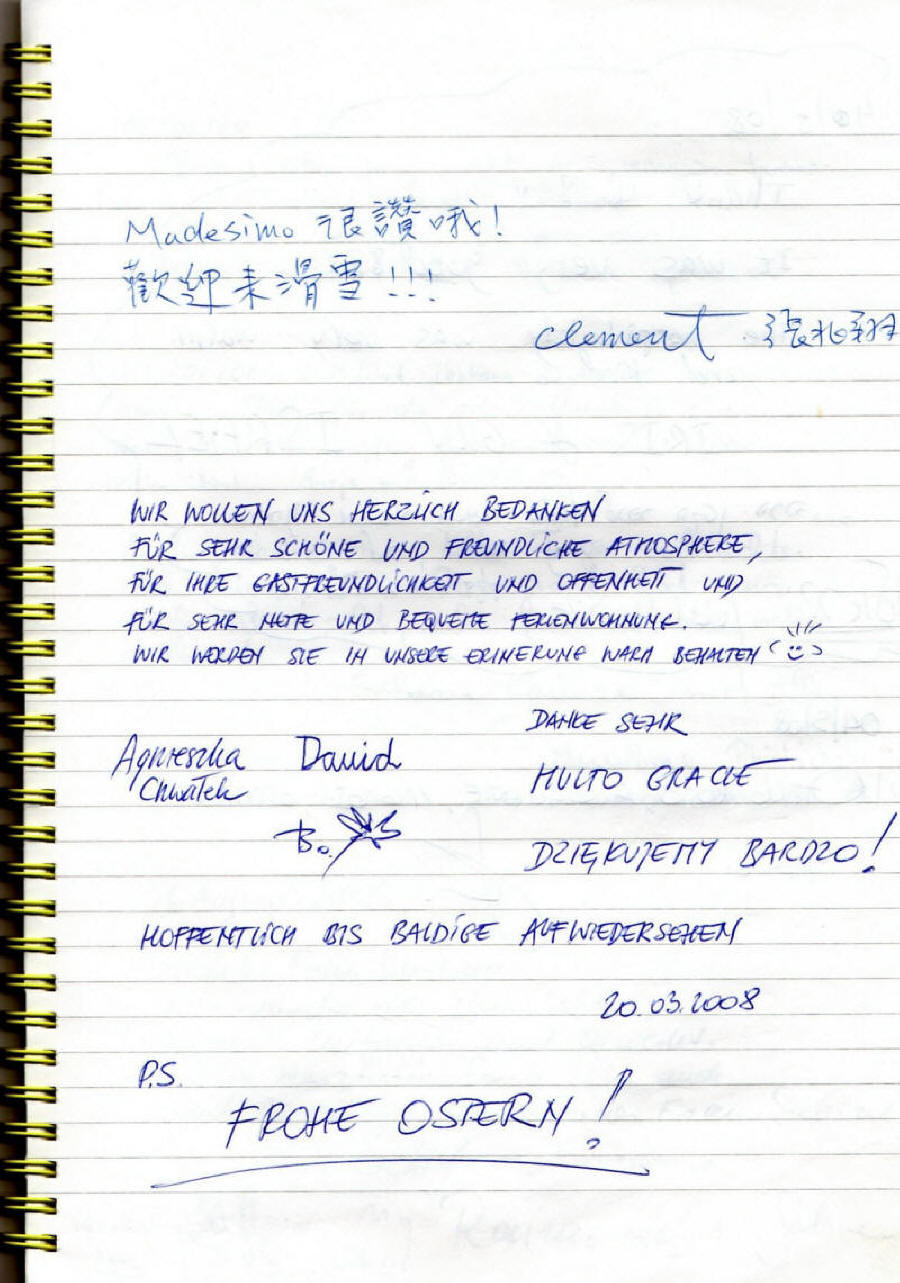 Madesimo 很讚哦!
歡迎来滑雪!!!
Clement 張兆翔
WIR WOLLEN UNS HERZLICH BEDANKEN
FÜR SEHR SCHÖNE UND FREUNDLICHE ATMOSPHERE,
FÜR IHRE GASTFREUNDLICHKEIT UND OFFENHEIT UND
FÜR SEHR NETTE UND BEQUEME FERIENWOHNUNG.
WIR WERDEN SIE IN UNSERE ERINERUNG WARM BEHALTEN
DANKE SEHR
Agnieszka Dawid
Chwałek
MULTO GRACIE
B.
DZIĘKUJEMY BARDZO!
HOFFENTLICH BIS BALDIGE AUFWIEDERSEHEN
20.03.2008
P.S.
FROHE OSTERN!